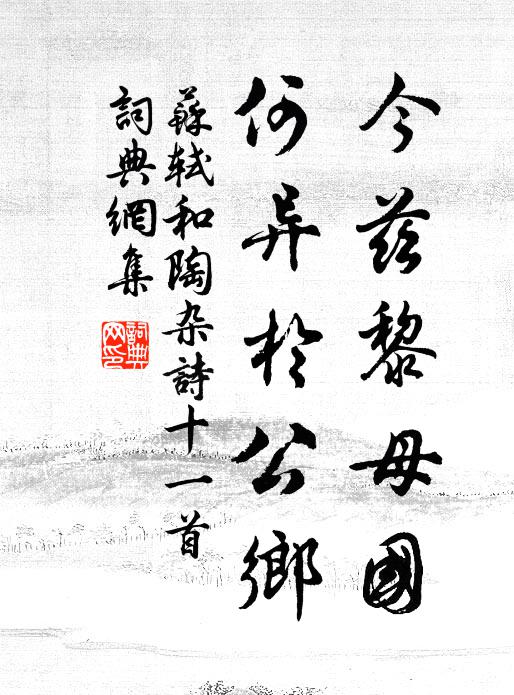 今茲黎母國
何异於公鄉
蘇軾和陶杂詩十一首
詞典網集
詞典网印